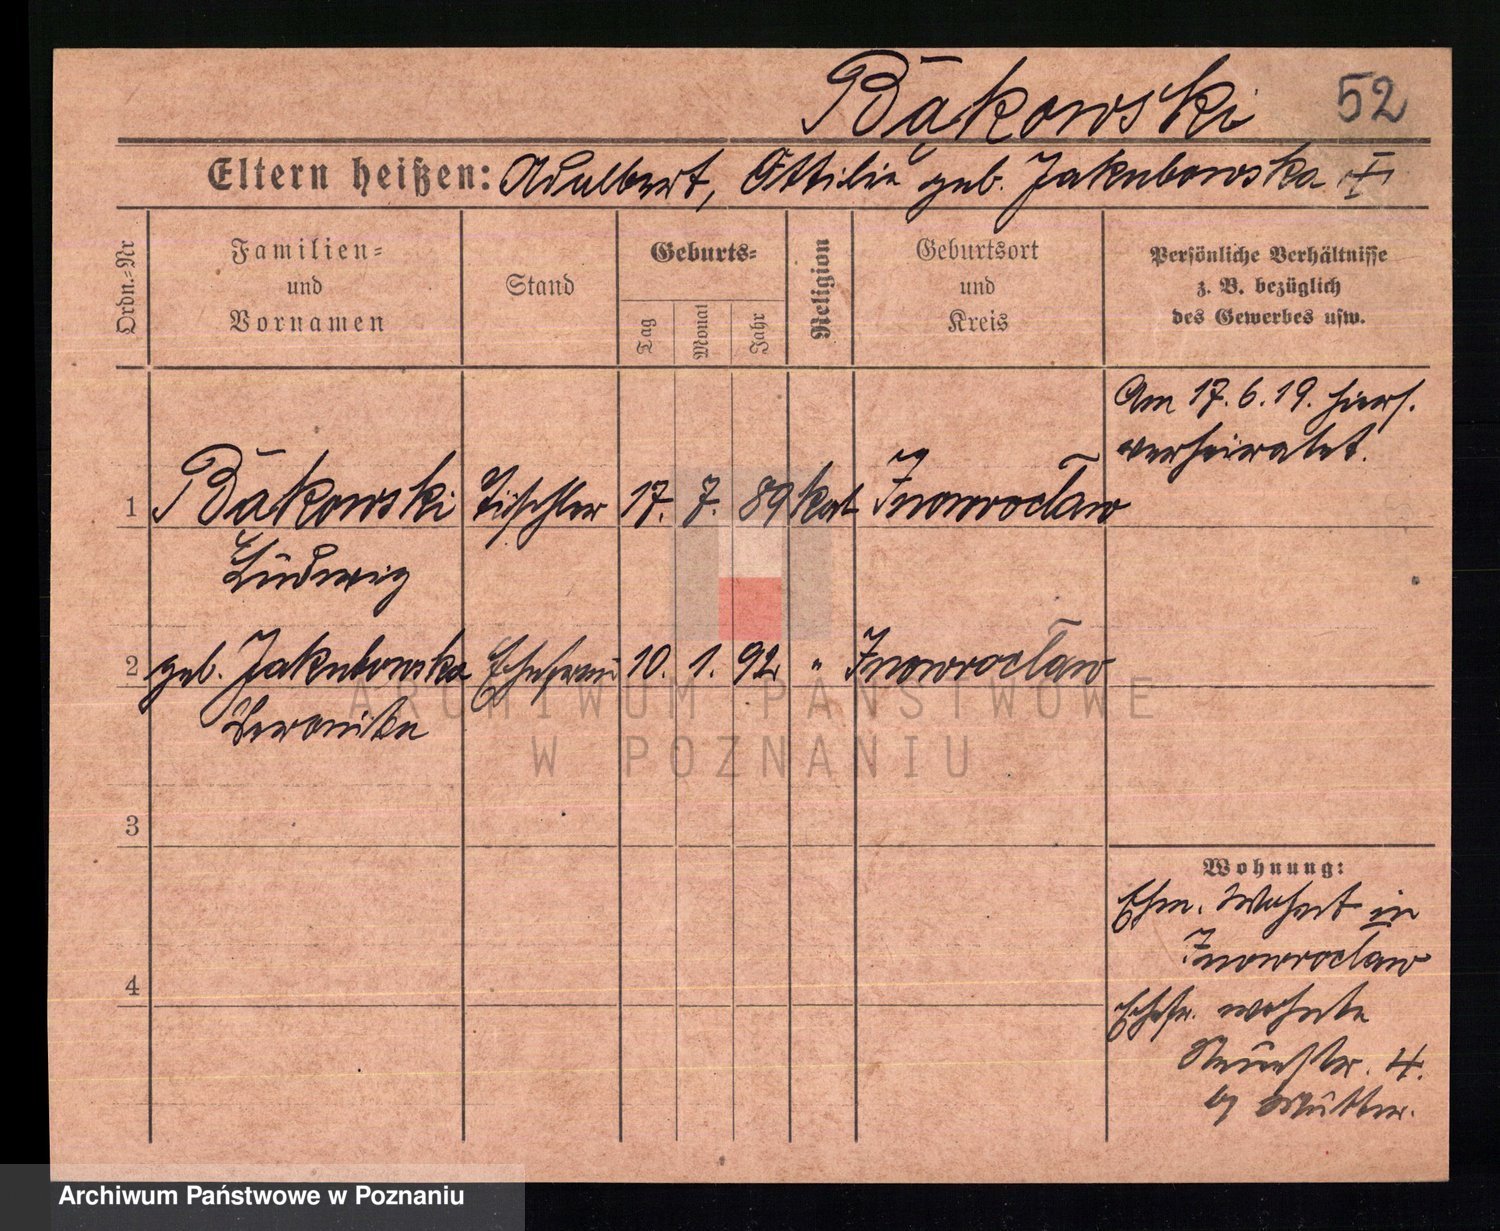 Bąkowski 52
Eltern heißen: Adalbert, Ottilie geb. Jakubowska I
Ordn.=Nr
Familien=
und
Vornamen
Stand
Geburts=
Tag
Monat
Jahr
Religion
Geburtsort
und
Kreis
Persönliche Verhältnisse
z. B. bezüglich
des Gewerbes usw.
Am 17.6.19. hiers.
verheiratet.
1 Bąkowski Tischler 17. 7. 89 kat Inowrocław
Ludwig
2 geb. Jakubowska Ehefrau 10. 1. 92 " Inowrocław
Veronika
3
4
Wohnung:
Ehm. Wohnt in
Inowrocław
Ehefr. wohnte
4.
Mutter.
ARCHIWUM PAŃSTWOWE
W POZNANIU
Archiwum Państwowe w Poznaniu